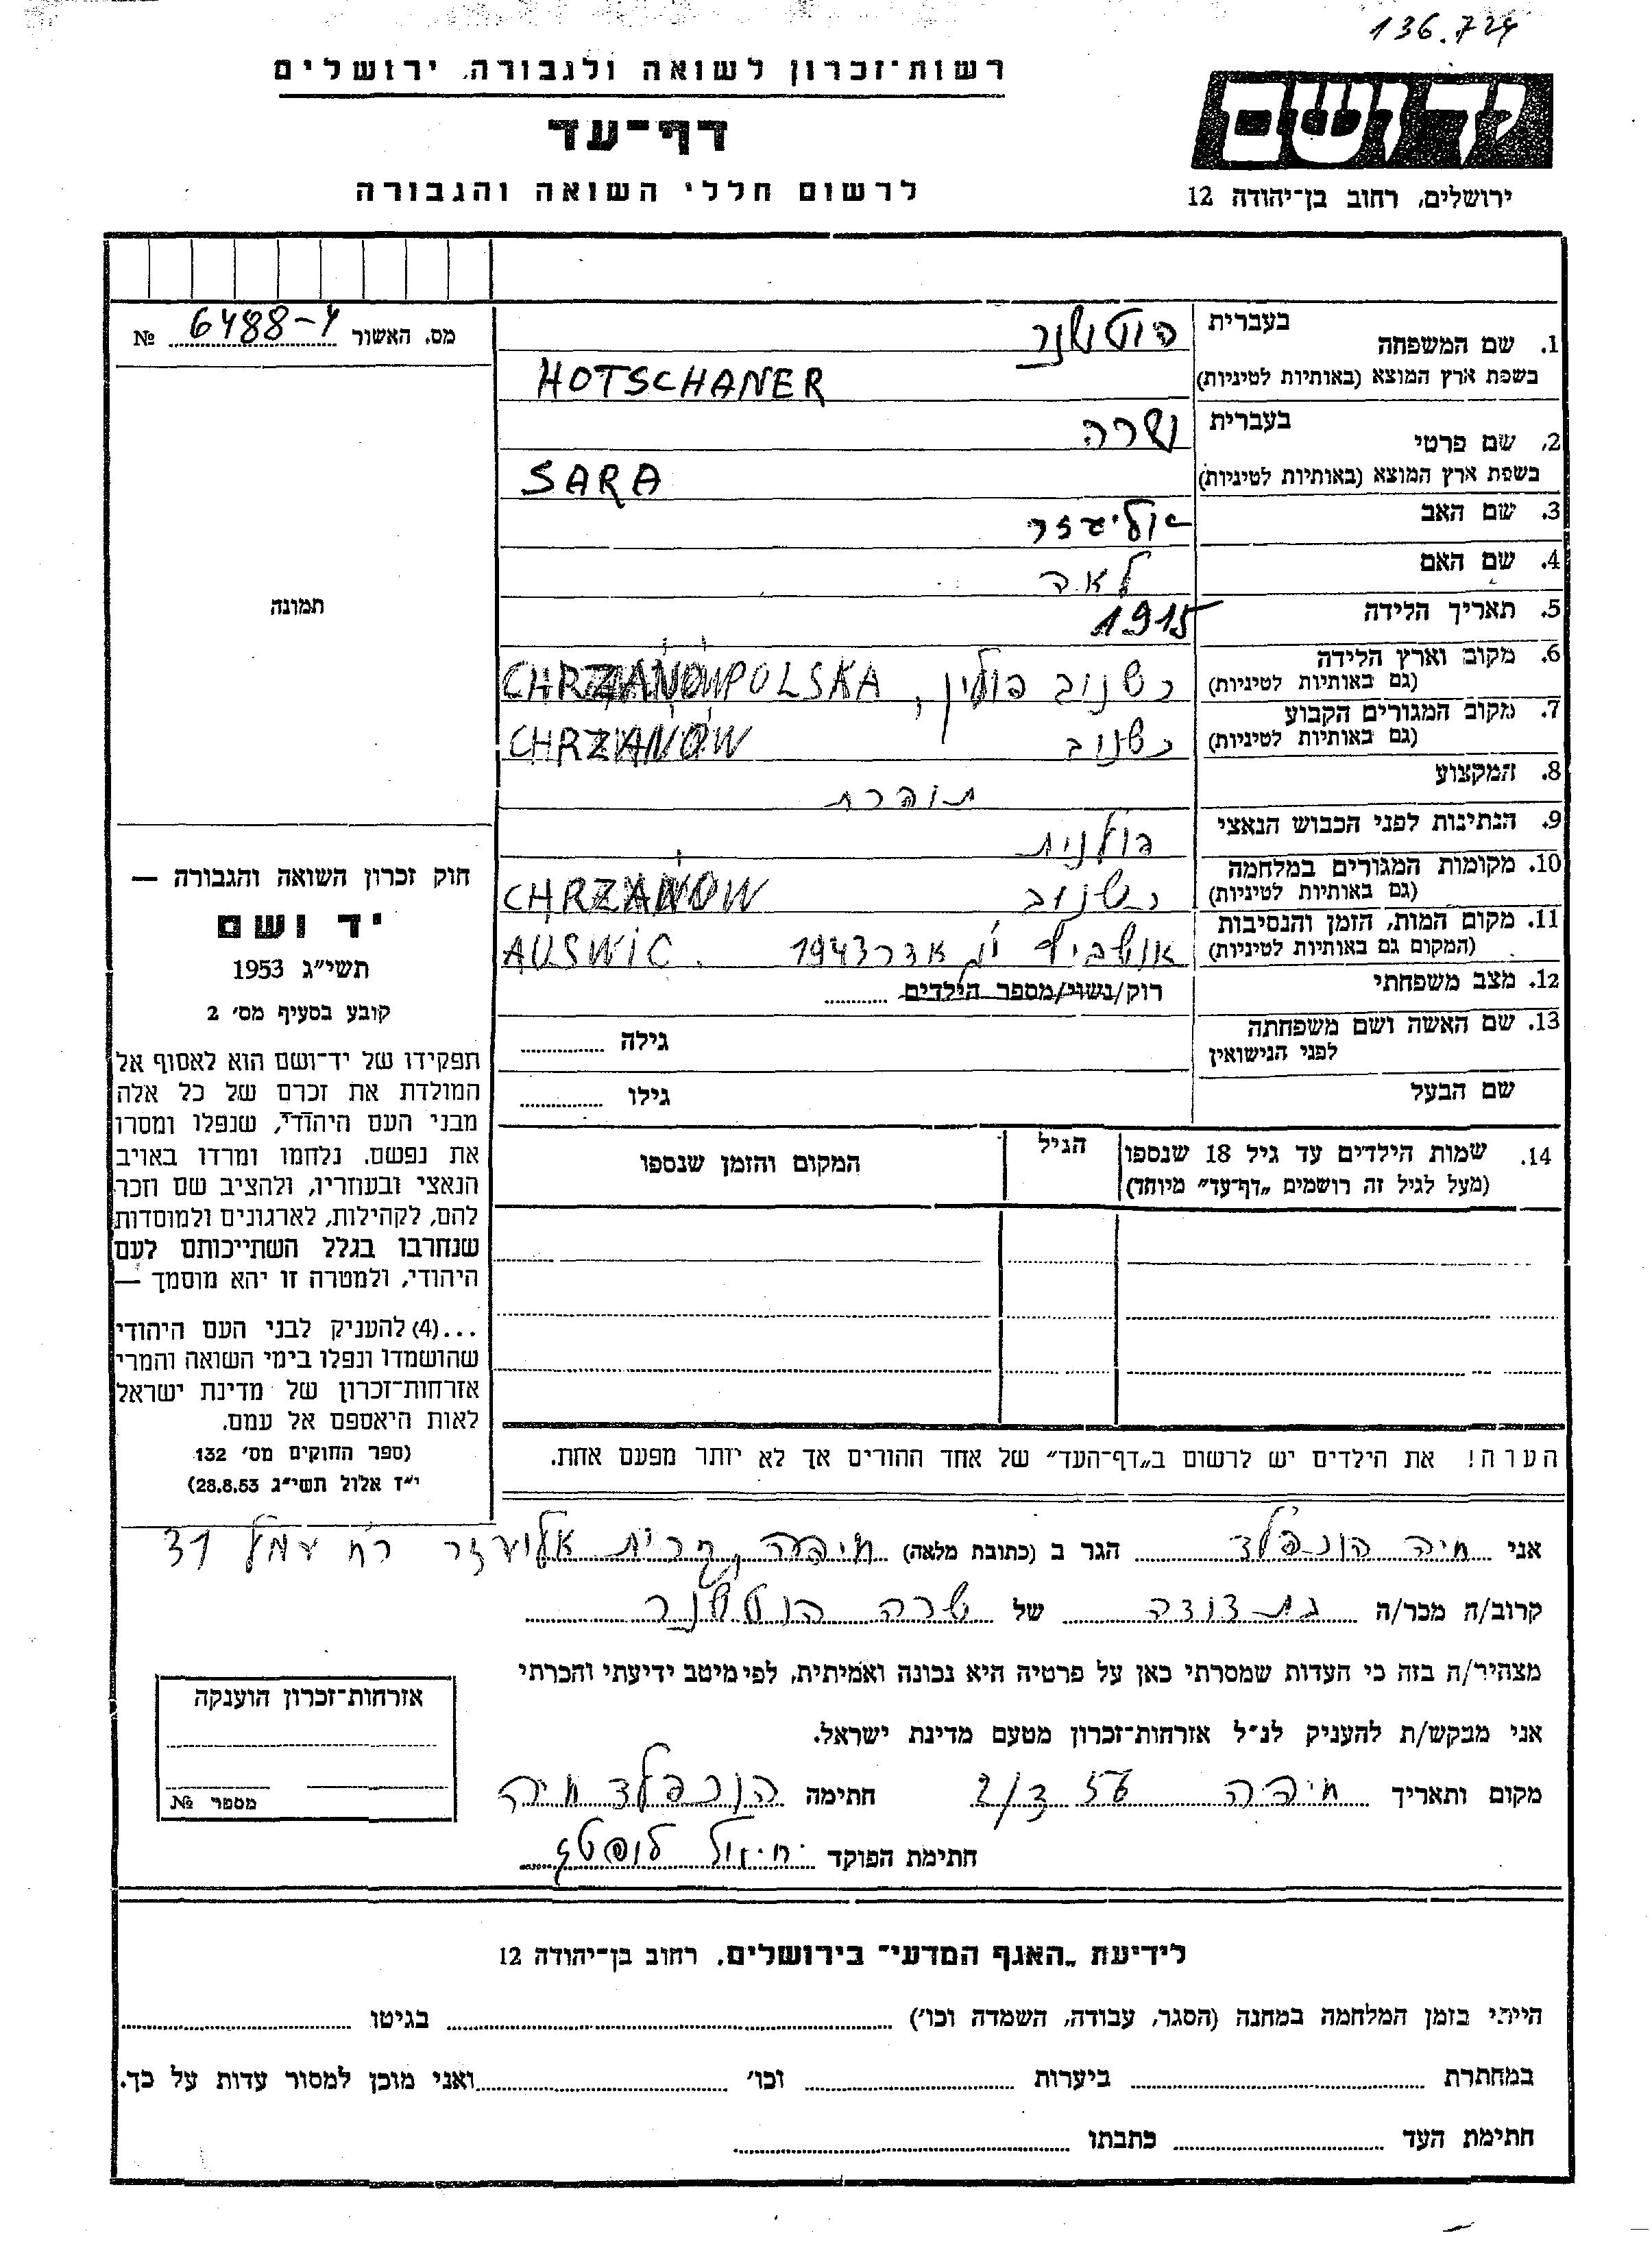 136.724
רשות־זכרון לשואה ולגבורה, ירושלים
דף־עד
לרשום חללי השואה והגבורה
יד ושם
ירושלים, רחוב בן־יהודה 12
מס. האשור 6488-4 №
1. שם המשפחה בעברית הוטשנר
בשפת ארץ המוצא (באותיות לטיניות) HOTSCHANER
2. שם פרטי בעברית שרה
בשפת ארץ המוצא (באותיות לטיניות) SARA
3. שם האב אליעזר
4. שם האם לאה
5. תאריך הלידה 1915
6. מקום וארץ הלידה (גם באותיות לטיניות) כשנוב פולין, CHRZANÓW POLSKA
7. מקום המגורים הקבוע (גם באותיות לטיניות) כשנוב CHRZANÓW
8. המקצוע תופרת
9. הנתינות לפני הכבוש הנאצי פולנית
10. מקומות המגורים במלחמה (גם באותיות לטיניות) כשנוב CHRZANOW
11. מקום המות, הזמן והנסיבות (המקום גם באותיות לטיניות) אושביץ י"ג אדר 1943 AUSWIC.
12. מצב משפחתי רוק/נשוי/מספר הילדים
13. שם האשה ושם משפחתה לפני הנישואין גילה
שם הבעל גילו
14. שמות הילדים עד גיל 18 שנספו (מעל לגיל זה רושמים „דף־עד" מיוחד) הגיל המקום והזמן שנספו
הערה! את הילדים יש לרשום ב„דף־העד" של אחד ההורים אך לא יותר מפעם אחת.
תמונה
חוק זכרון השואה והגבורה —
יד ושם
תשי"ג 1953
קובע בסעיף מס׳ 2
תפקידו של יד־ושם הוא לאסוף אל
המולדת את זכרם של כל אלה
מבני העם היהודי, שנפלו ומסרו
את נפשם, נלחמו ומרדו באויב
הנאצי ובעוזריו, ולהציב שם וזכר
להם, לקהילות, לארגונים ולמוסדות
שנחרבו בגלל השתייכותם לעם
היהודי, ולמטרה זו יהא מוסמך —
...(4) להעניק לבני העם היהודי
שהושמדו ונפלו בימי השואה והמרי
אזרחות־זכרון של מדינת ישראל
לאות היאספם אל עמם.
(ספר החוקים מס׳ 132
י״ז אלול תשי״ג 28.8.53)
אני חיה הונפלד הגר ב (כתובת מלאה) חיפה, קרית אליעזר רח עמל 31
קרוב/ה מכר/ה בת דודה של שרה הוטשנר
מצהיר/ה בזה כי העדות שמסרתי כאן על פרטיה היא נכונה ואמיתית, לפי מיטב ידיעתי והכרתי
אני מבקש/ת להעניק לנ״ל אזרחות־זכרון מטעם מדינת ישראל.
מקום ותאריך חיפה 2/3 56 חתימה הונפלד חיה
חתימת הפוקד
אזרחות־זכרון הוענקה
מספר №
לידיעת „האגף המדעי" בירושלים, רחוב בן־יהודה 12
הייתי בזמן המלחמה במחנה (הסגר, עבודה, השמדה וכו׳) בגיטו
במחתרת ביערות וכו׳ ואני מוכן למסור עדות על כך.
חתימת העד כתבתו